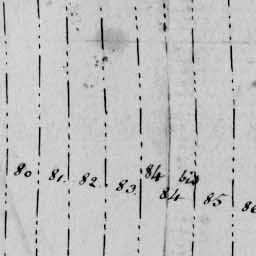 80 81. 82. 83. 84 bis
84 85 86